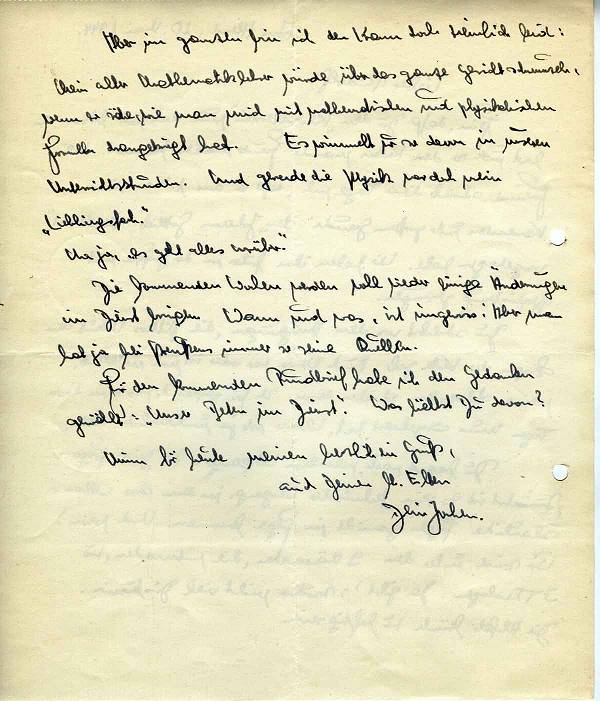 Aber im ganzen bin ich den Kram doch ziemlich leid:
Mein alter Mathematiklehrer würde über das ganze Gesicht schmunzeln,
wenn er sähe, wie man mich mit mathematischen und physikalischen
Formeln drangekriegt hat. Es wimmelt so davon in unseren
Unterrichtsstunden. Und gerade die Physik war doch mein
„Lieblingsfach."
Na ja, „es geht alles vorüber."
Die kommenden Wochen werden wohl wieder einige Änderungen
im Dienst bringen. Wann und was, ist ungewiss; Aber man
hat ja bei Preußens immer so seine Quellen.
Für den kommenden Rundbrief habe ich den Gedanken
gewählt: „Unser Leben im Dienst". Was hältst Du davon?
Nimm für heute meinen herzlichen Gruß,
auch Deinen lb. Eltern
Dein